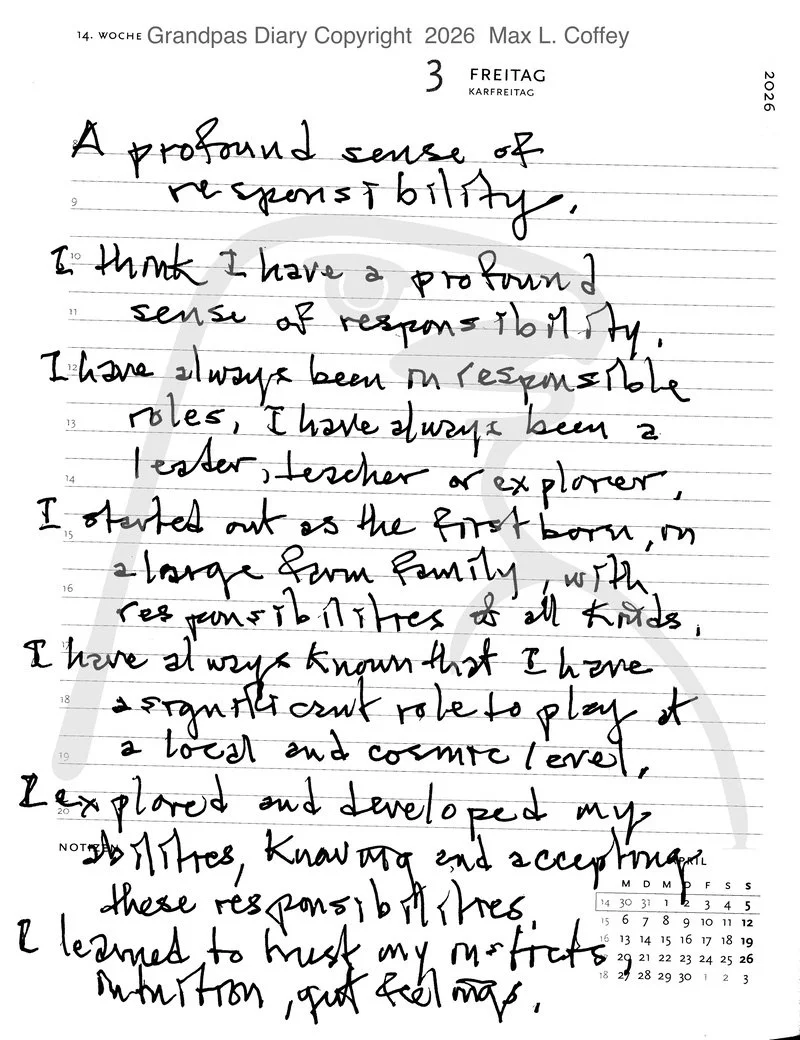 14. WOCHE Grandpas Diary Copyright 2026 Max L. Coffey
3 FREITAG
KARFREITAG
2026
A profound sense of
responsibility.
I think I have a profound
sense of responsibility.
I have always been in responsible
roles, I have always been a
leater, teacher or explorer,
I started out as the first born, in
a large farm family, with
responsibilities of all kinds.
I have always known that I have
a significant role to play at
a local and cosmic level,
I explored and developed my
abilities, knowing and accepting
these responsibilities.
I learned to trust my insticts,
intuition, gut feelings.
8
9
10
11
12
13
14
15
16
17
18
19
20
NOTIZEN
APRIL
M D M D F S S
14 30 31 1 2 3 4 5
15 6 7 8 9 10 11 12
16 13 14 15 16 17 18 19
17 20 21 22 23 24 25 26
18 27 28 29 30 1 2 3